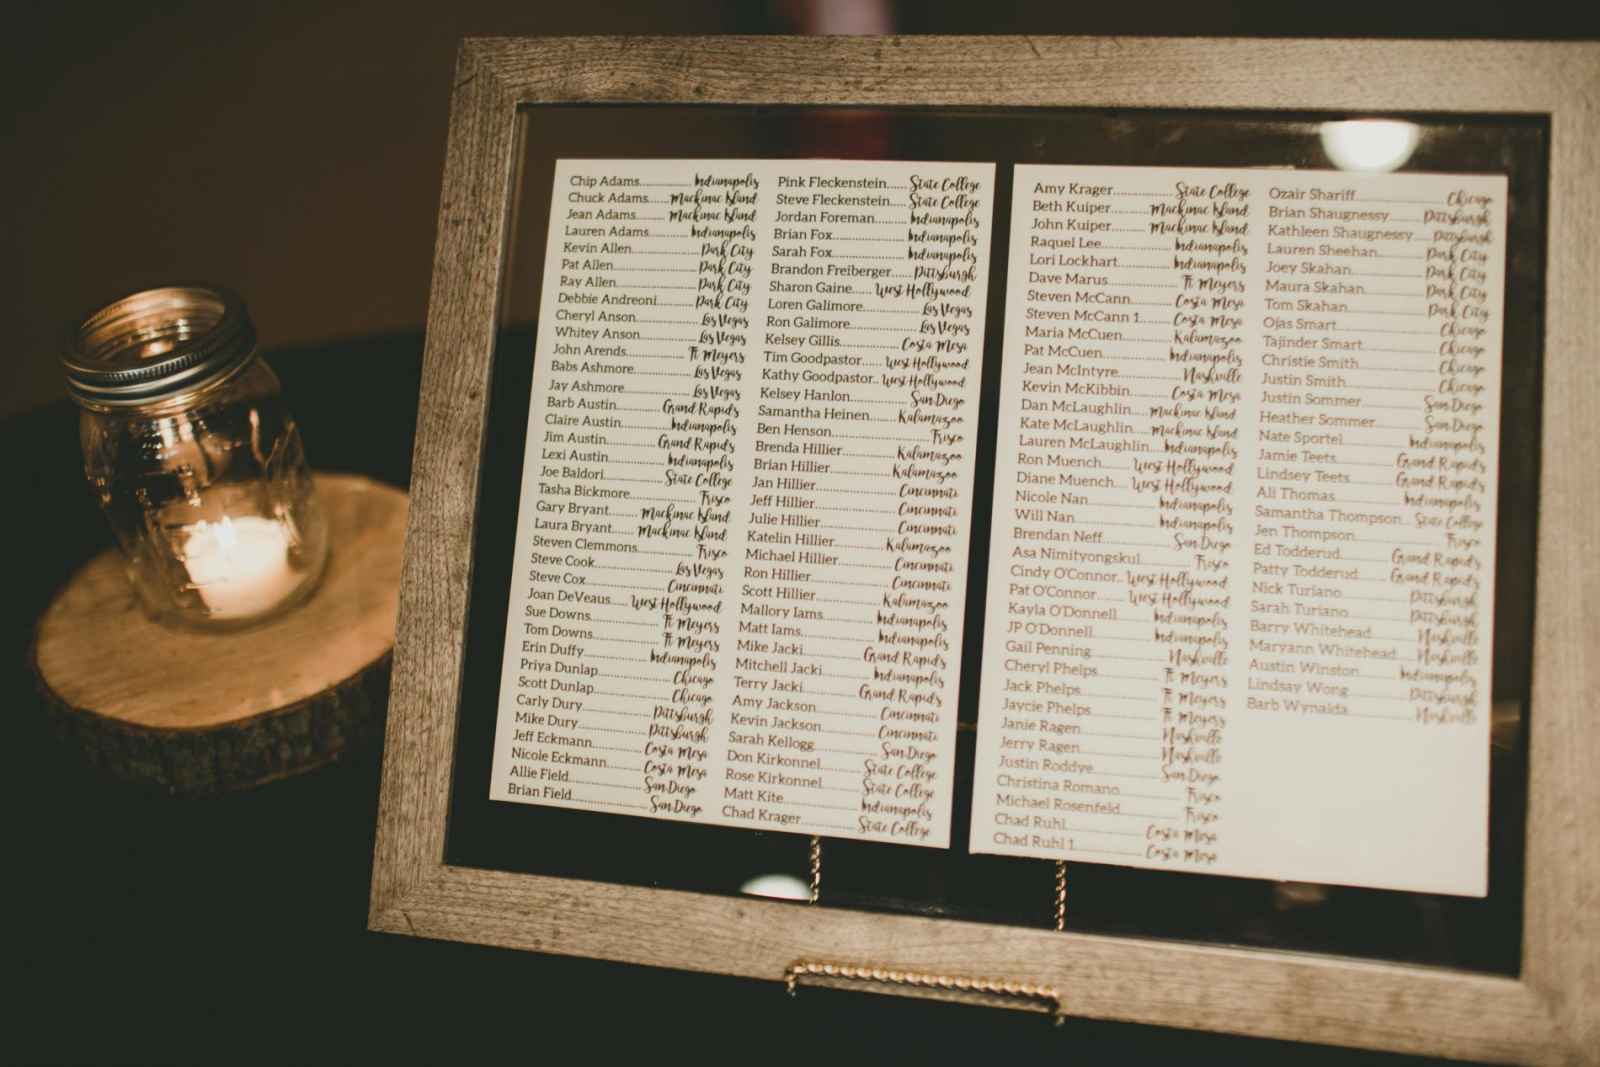 Chip Adams.............. Indianapolis
Chuck Adams...... Mackinac Island
Jean Adams........ Mackinac Island
Lauren Adams.......... Indianapolis
Kevin Allen.................. Park City
Pat Allen...................... Park City
Ray Allen..................... Park City
Debbie Andreoni......... Park City
Cheryl Anson................ Las Vegas
Whitey Anson............... Las Vegas
John Arends................ Ft Meyers
Babs Ashmore............... Las Vegas
Jay Ashmore................. Las Vegas
Barb Austin........... Grand Rapids
Claire Austin............ Indianapolis
Jim Austin............. Grand Rapids
Lexi Austin............... Indianapolis
Joe Baldori............... State College
Tasha Bickmore................. Frisco
Gary Bryant....... Mackinac Island
Laura Bryant...... Mackinac Island
Steven Clemmons.............. Frisco
Steve Cook.................... Las Vegas
Steve Cox.................... Cincinnati
Joan DeVeaus.... West Hollywood
Sue Downs.................. Ft Meyers
Tom Downs................. Ft Meyers
Erin Duffy................ Indianapolis
Priya Dunlap.................. Chicago
Scott Dunlap.................. Chicago
Carly Dury................. Pittsburgh
Mike Dury.................. Pittsburgh
Jeff Eckmann............. Costa Mesa
Nicole Eckmann......... Costa Mesa
Allie Field................... San Diego
Brian Field................... San Diego
Pink Fleckenstein...... State College
Steve Fleckenstein.... State College
Jordan Foreman........ Indianapolis
Brian Fox................. Indianapolis
Sarah Fox................. Indianapolis
Brandon Freiberger..... Pittsburgh
Sharon Gaine...... West Hollywood
Loren Galimore............. Las Vegas
Ron Galimore................ Las Vegas
Kelsey Gillis............... Costa Mesa
Tim Goodpastor..... West Hollywood
Kathy Goodpastor.. West Hollywood
Kelsey Hanlon.............. San Diego
Samantha Heinen....... Kalamazoo
Ben Henson....................... Frisco
Brenda Hillier............. Kalamazoo
Brian Hillier................ Kalamazoo
Jan Hillier..................... Cincinnati
Jeff Hillier.................... Cincinnati
Julie Hillier................... Cincinnati
Katelin Hillier............. Kalamazoo
Michael Hillier.............. Cincinnati
Ron Hillier.................... Cincinnati
Scott Hillier................ Kalamazoo
Mallory Iams............ Indianapolis
Matt Iams................. Indianapolis
Mike Jacki............. Grand Rapids
Mitchell Jacki........... Indianapolis
Terry Jacki............ Grand Rapids
Amy Jackson............... Cincinnati
Kevin Jackson.............. Cincinnati
Sarah Kellogg.............. San Diego
Don Kirkonnel......... State College
Rose Kirkonnel........ State College
Matt Kite................. Indianapolis
Chad Krager............ State College
Amy Krager............. State College
Beth Kuiper........ Mackinac Island
John Kuiper........ Mackinac Island
Raquel Lee............... Indianapolis
Lori Lockhart............ Indianapolis
Dave Marus................ Ft Meyers
Steven McCann......... Costa Mesa
Steven McCann 1....... Costa Mesa
Maria McCuen........... Kalamazoo
Pat McCuen.............. Indianapolis
Jean McIntyre.............. Nashville
Kevin McKibbin.......... Costa Mesa
Dan McLaughlin.... Mackinac Island
Kate McLaughlin... Mackinac Island
Lauren McLaughlin... Indianapolis
Ron Muench....... West Hollywood
Diane Muench... West Hollywood
Nicole Nan............... Indianapolis
Will Nan.................. Indianapolis
Brendan Neff............... San Diego
Asa Nimityongskul............. Frisco
Cindy O'Connor.. West Hollywood
Pat O'Connor...... West Hollywood
Kayla O'Donnell........ Indianapolis
JP O'Donnell............ Indianapolis
Gail Penning................ Nashville
Cheryl Phelps.............. Ft Meyers
Jack Phelps................. Ft Meyers
Jaycie Phelps............... Ft Meyers
Janie Ragen................. Nashville
Jerry Ragen................. Nashville
Justin Roddye.............. San Diego
Christina Romano.............. Frisco
Michael Rosenfeld............. Frisco
Chad Ruhl................. Costa Mesa
Chad Ruhl 1............... Costa Mesa
Ozair Shariff.................. Chicago
Brian Shaugnessy....... Pittsburgh
Kathleen Shaugnessy.... Pittsburgh
Lauren Sheehan............ Park City
Joey Skahan................. Park City
Maura Skahan............... Park City
Tom Skahan................. Park City
Ojas Smart................... Chicago
Tajinder Smart.............. Chicago
Christie Smith................ Chicago
Justin Smith.................. Chicago
Justin Sommer............. San Diego
Heather Sommer.......... San Diego
Nate Sportel............. Indianapolis
Jamie Teets............ Grand Rapids
Lindsey Teets.......... Grand Rapids
Ali Thomas............... Indianapolis
Samantha Thompson.. State College
Jen Thompson.................. Frisco
Ed Todderud.......... Grand Rapids
Patty Todderud...... Grand Rapids
Nick Turiano............... Pittsburgh
Sarah Turiano............. Pittsburgh
Barry Whitehead........... Nashville
Maryann Whitehead...... Nashville
Austin Winston.......... Indianapolis
Lindsay Wong............. Pittsburgh
Barb Wynalda............... Nashville